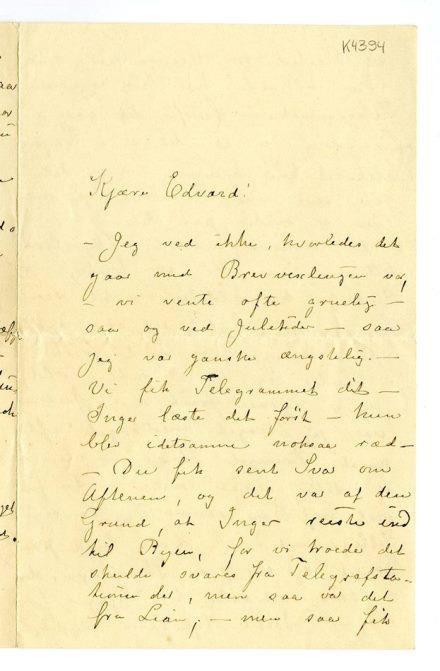 K4394
Kjære Edvard!
– Jeg ved ikke, hvorledes det
gaar med Brevvexlingen vor,
– vi vente ofte gruelig –
saa og ved Juletider – saa
jeg var ganske ængstelig. –
Vi fik Telegrammet dit –
Inger læste det først – hun
blev idetsamme noksaa ræd –
– Du fik sent Svar om
Aftenen, og det var af den
Grund, at Inger reiste ind
til Byen, for vi troede det
skulde svares fra Telegrafsta-
tionen der, men saa var det
fra Lian, – men saa fik